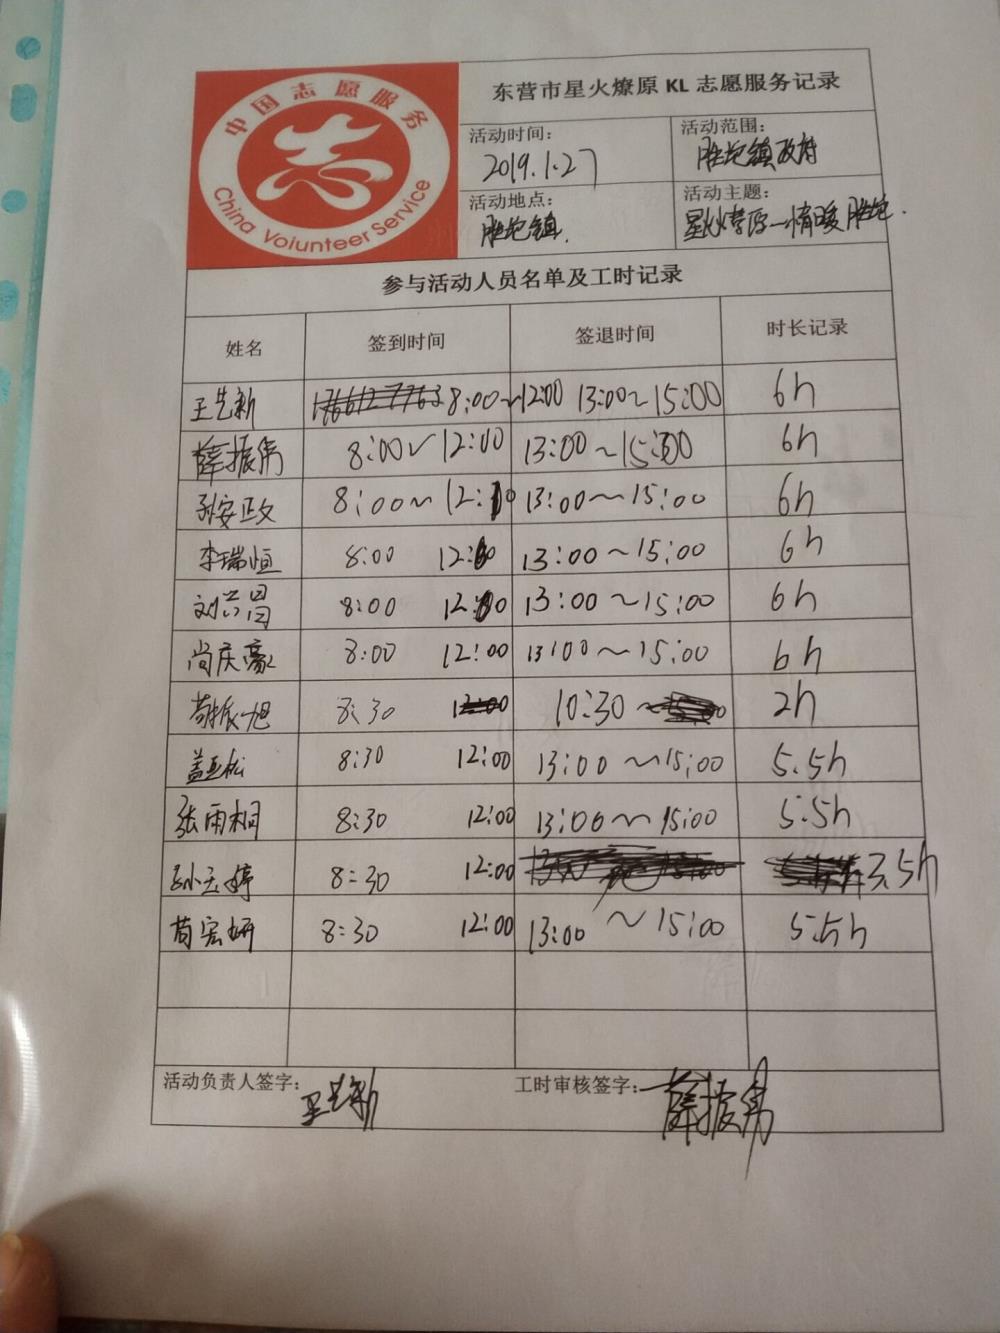 中国志愿服务
China Volunteer Service
东营市星火燎原 KL 志愿服务记录
活动时间:
2019.1.27
活动范围:
胜坨镇政府
活动地点:
胜坨镇.
活动主题:
星火燎原—情暖胜坨.
参与活动人员名单及工时记录
姓名 签到时间 签退时间 时长记录
王艺新 8:00~12:00 13:00~15:00 6h
薛振伟 8:00~12:00 13:00~15:00 6h
孙安正文 8:00~12:00 13:00~15:00 6h
李瑞恒 8:00 12:00 13:00~15:00 6h
刘兴昌 8:00 12:00 13:00~15:00 6h
尚庆豪 8:00 12:00 13:00~15:00 6h
苟振旭 8:30 10:30 2h
盖亚松 8:30 12:00 13:00~15:00 5.5h
张雨桐 8:30 12:00 13:00~15:00 5.5h
孙玉婷 8:30 12:00 3.5h
苟宏妍 8:30 12:00 13:00 ~15:00 5.5h
活动负责人签字: 王艺新
工时审核签字: 薛振伟